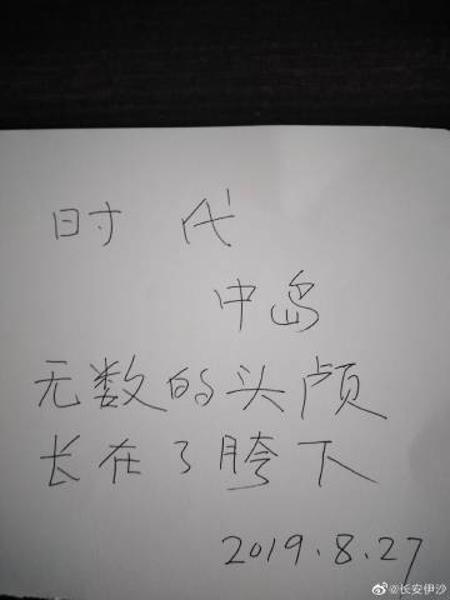 时 代
中岛
无数的头颅
长在了胯下
2019.8.27
@长安伊沙